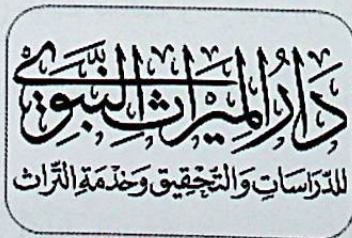 دَارُ المِيْرَاثِ النَّبَوِيِّ
للدِّرَاسَاتِ وَالتَّحْقِيقِ وَخِدْمَةِ التُّرَاث